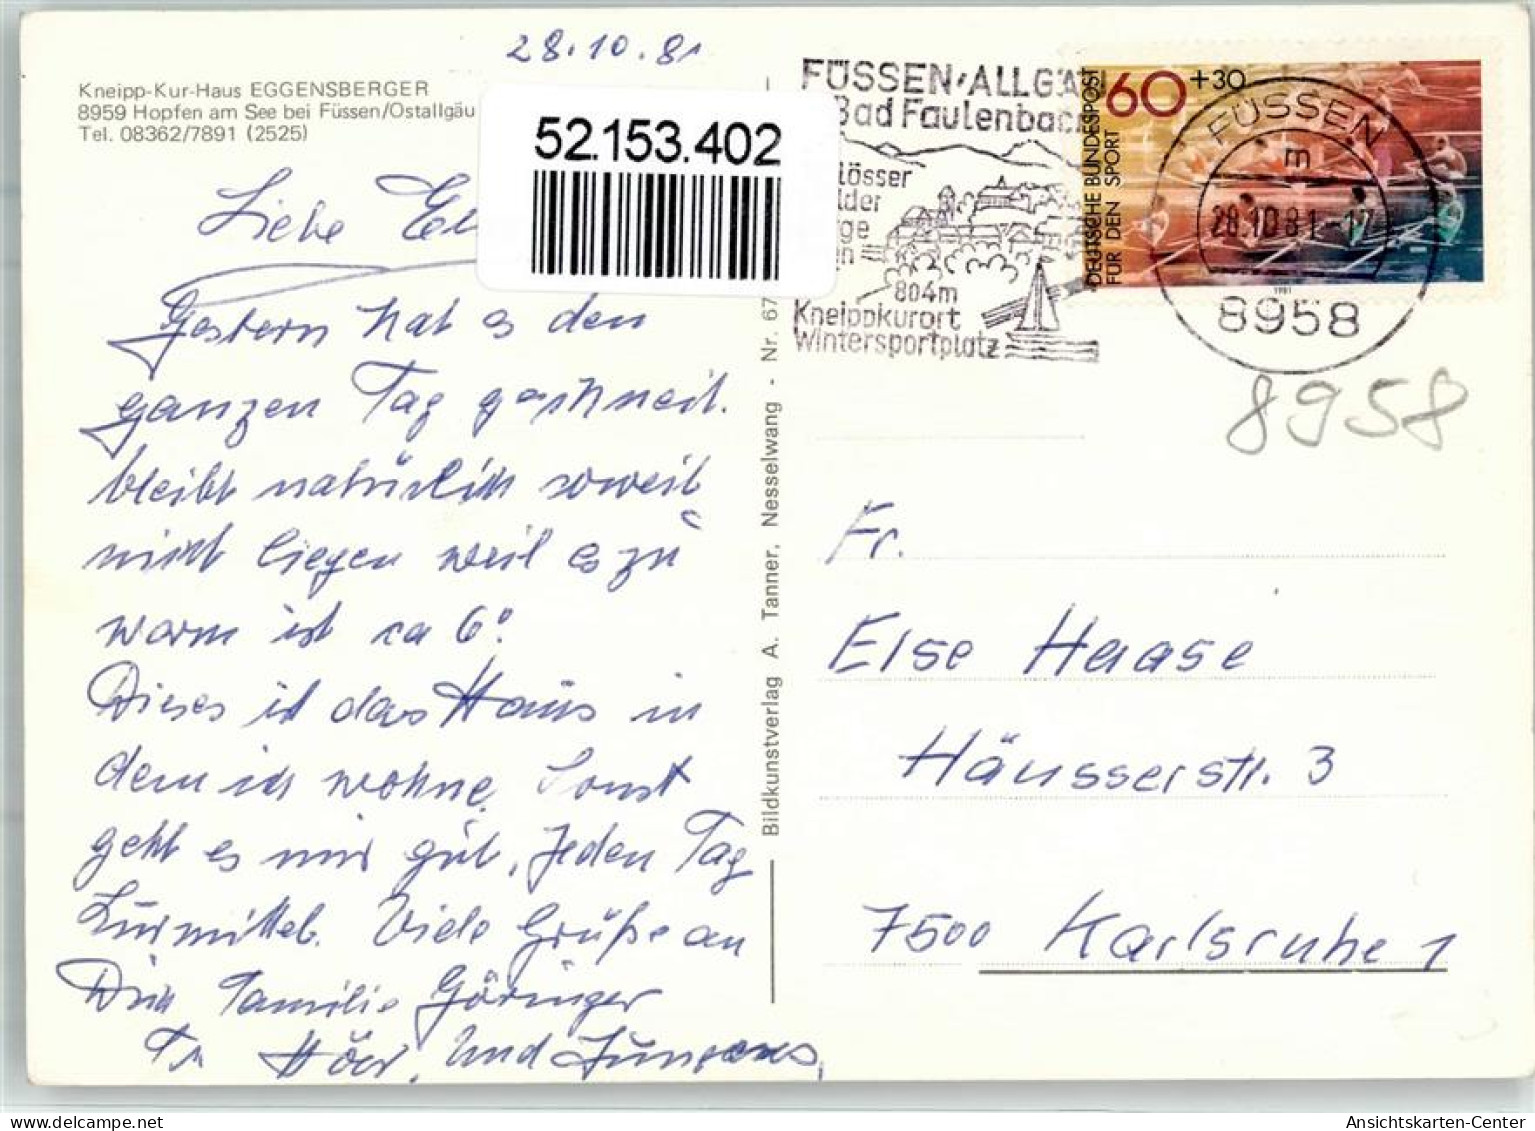 28.10.81
Kneipp-Kur-Haus EGGENSBERGER
8959 Hopfen am See bei Füssen/Ostallgäu
Tel. 08362/7891 (2525)
52.153.402
Liebe
Gestern hat es den
ganzen Tag geschneit.
bleibt natürlich soweit
nicht liegen weil es zu
warm ist ca 6°.
Dieses ist das Haus in
dem ich wohne. Sonst
geht es mir gut, Jeden Tag
Kurmittel. Viele Grüße an
Dich Familie Göringer
Fr und
Bildkunstverlag A. Tanner, Nesselwang - Nr. 67
FÜSSEN·ALLGÄ
Bad Faulenbach
lösser
lder
ge
en
804m
Kneippkurort
Wintersportplatz
60+30
DEUTSCHE BUNDESPOST
FÜR DEN SPORT
1981
FÜSSEN
m
28.10.81.-17
8958
8958
Fr.
Else Haase
Häusserstr. 3
7500 Karlsruhe 1
Ansichtskarten-Center